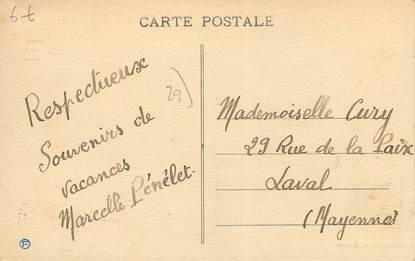 6f
CARTE POSTALE
29
Respectueux
Souvenirs de
vacances
Marcelle Pénélet.
Mademoiselle Cury
29 Rue de la Paix
Laval
(Mayenne)